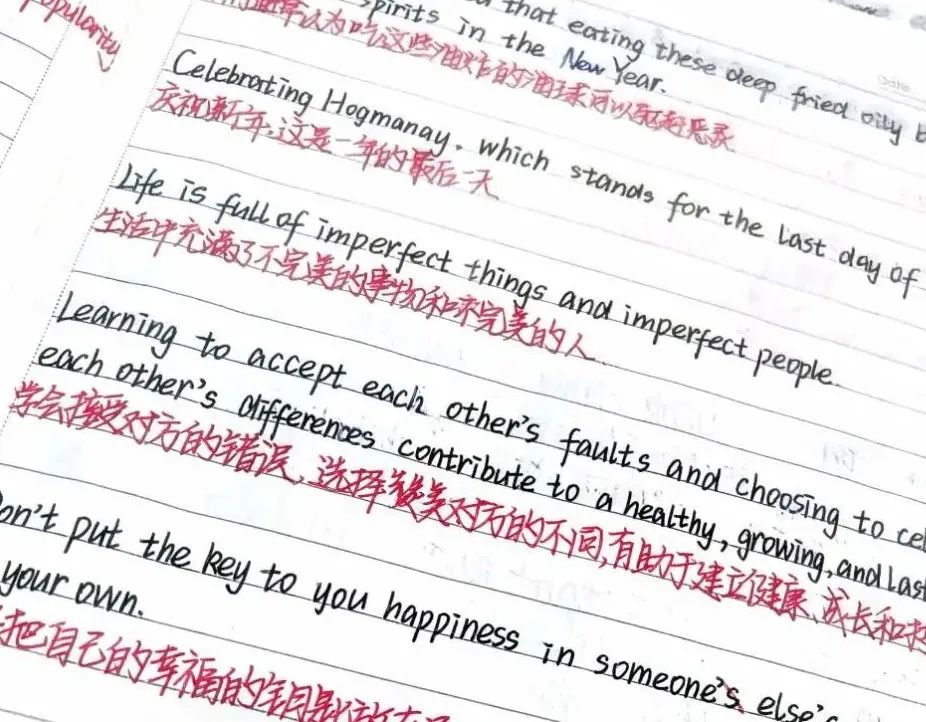 popularity
that eating these deep fried oily
spirits in the New Year.
认为吃这些油炸的油球可以驱赶恶灵
Celebrating Hogmanay, which stands for the last day of
庆祝新年,这是一年的最后一天
Life is full of imperfect things and imperfect people.
生活中充满了不完美的事物和不完美的人
Learning to accept each other's faults and choosing to cel
each other's differences contribute to a healthy, growing, and last
学会接受对方的错误,选择赞美对方的不同,有助于建立健康、成长和
on't put the key to you happiness in someone's else's
your own.
把自己的幸福的钥匙